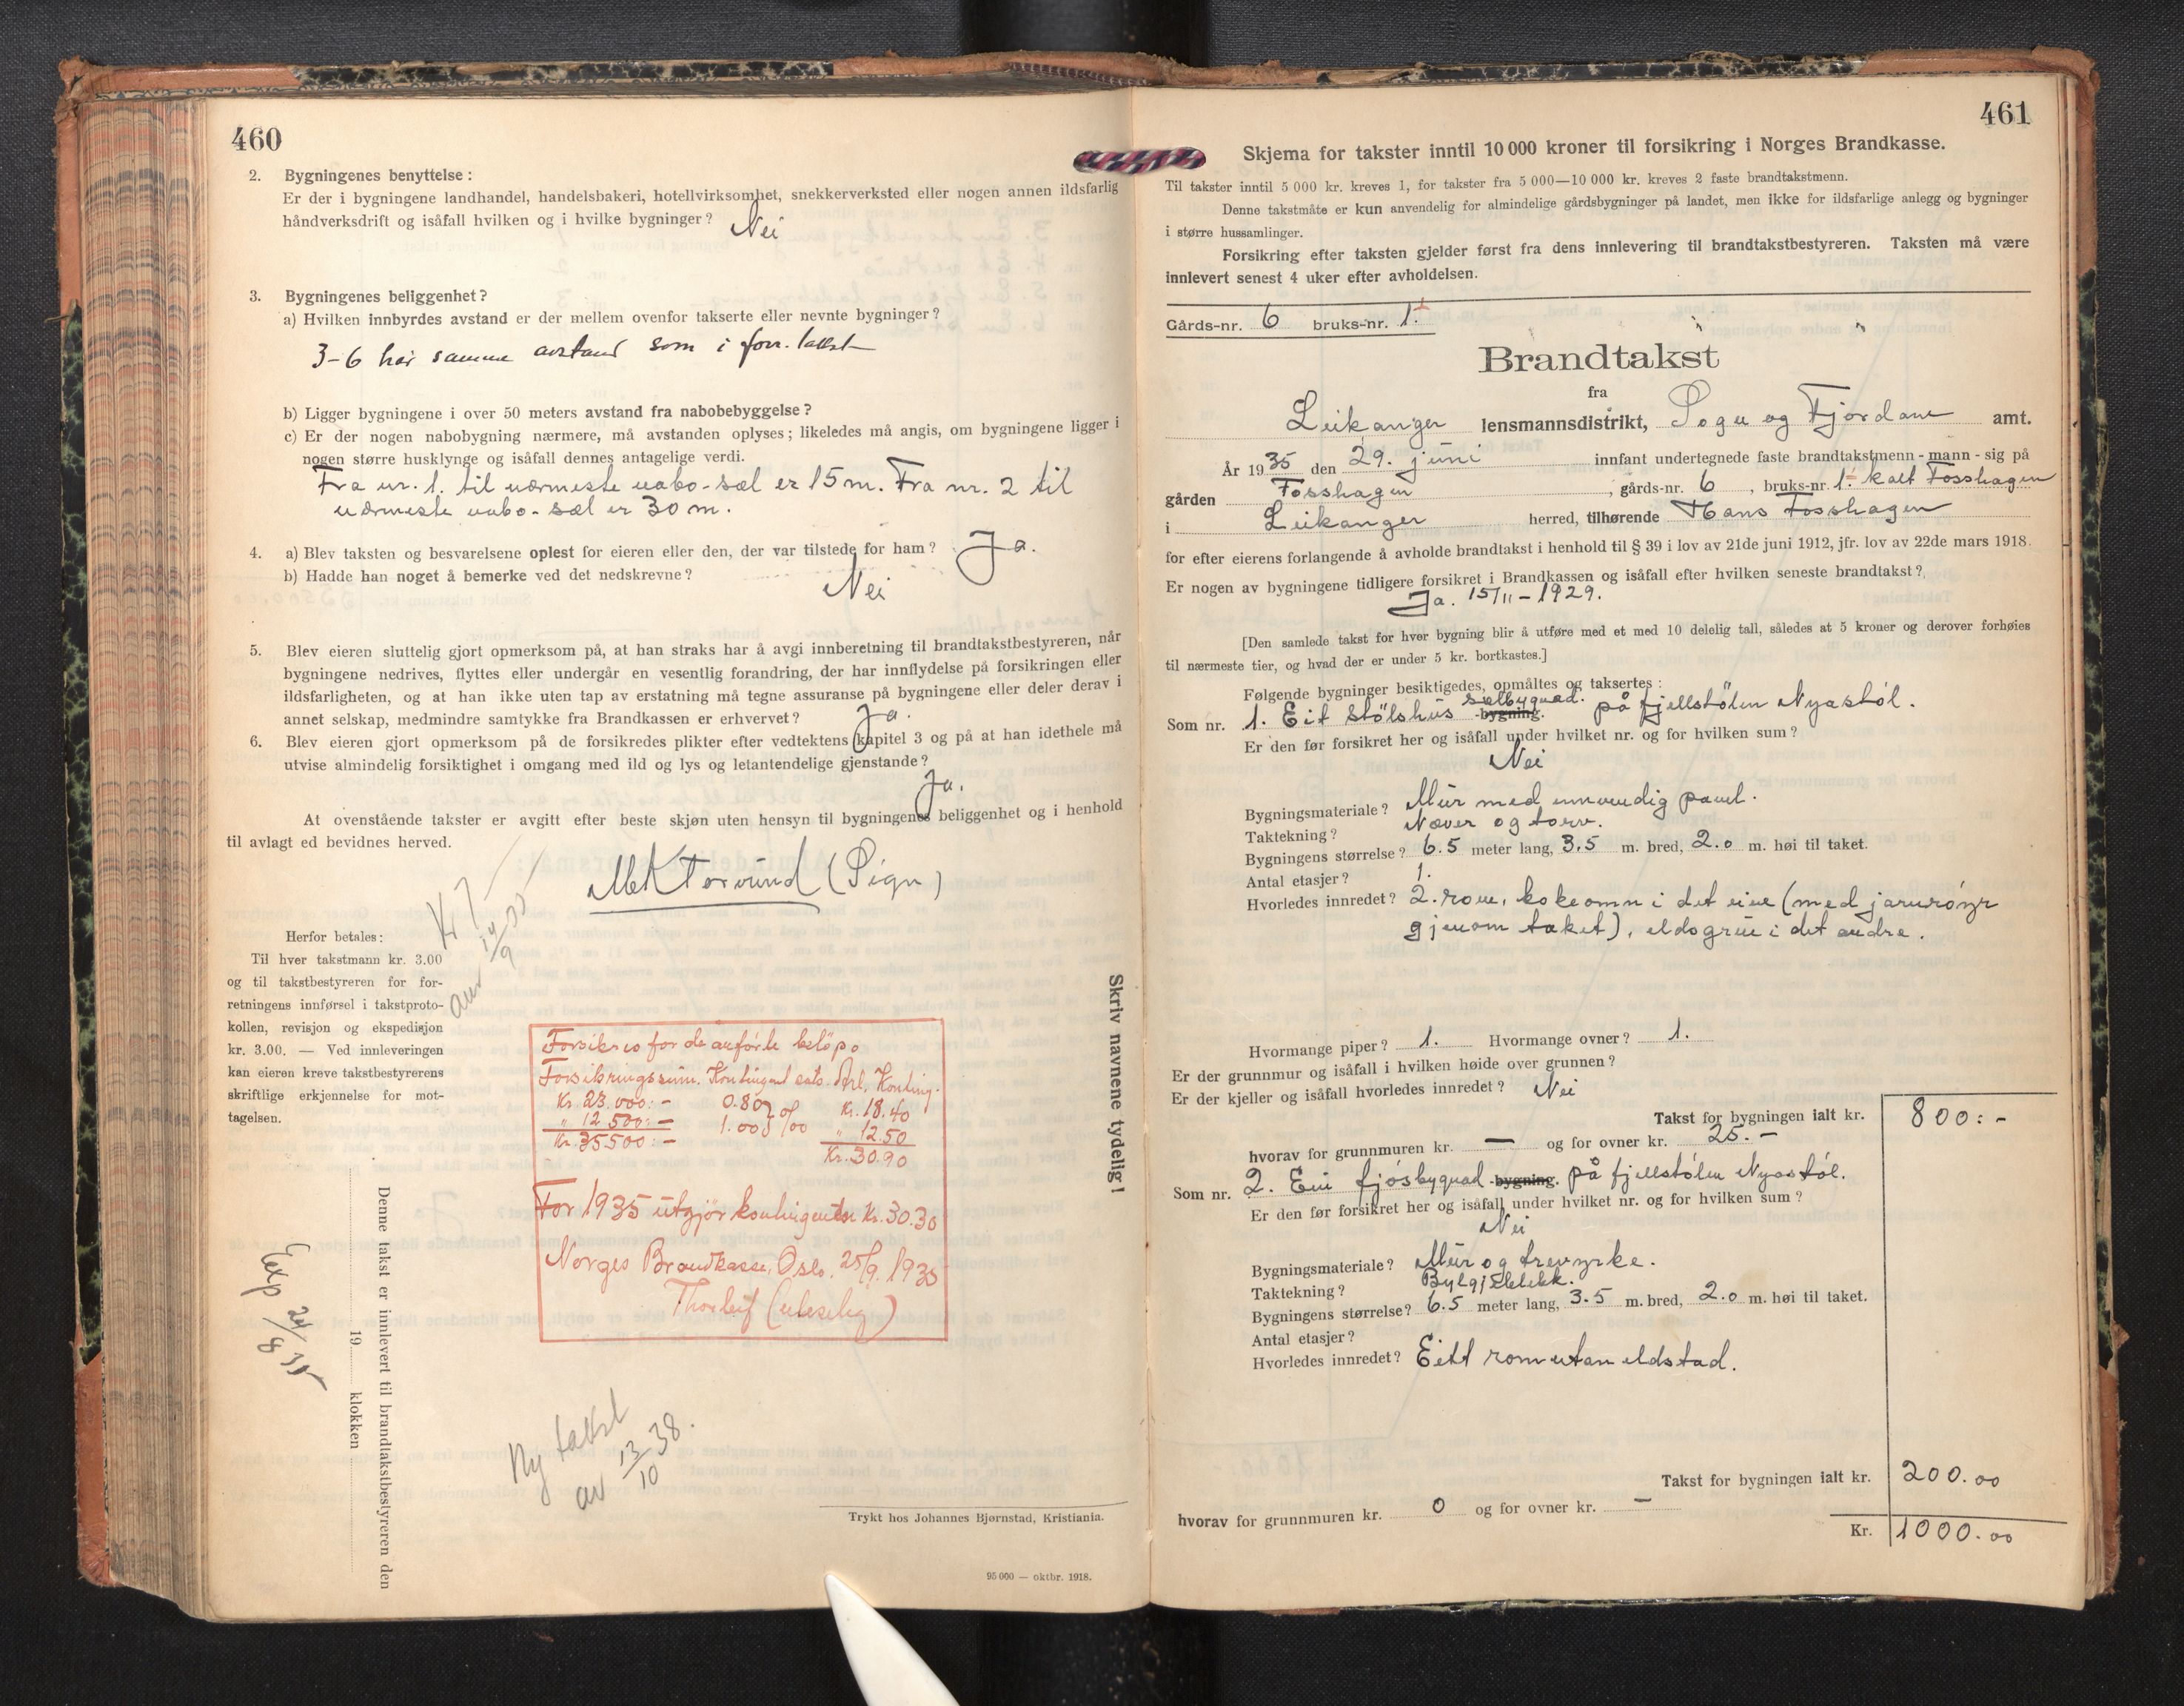 460
2. Bygningenes benyttelse:
Er der i bygningene landhandel, handelsbakeri, hotellvirksomhet, snekkerverksted eller nogen annen ildsfarlig
håndverksdrift og isåfall hvilken og i hvilke bygninger? Nei
3. Bygningenes beliggenhet?
a) Hvilken innbyrdes avstand er der mellem ovenfor takserte eller nevnte bygninger?
3-6 har samme avstand som i forr. takst
b) Ligger bygningene i over 50 meters avstand fra nabobebyggelse?
c) Er der nogen nabobygning nærmere, må avstanden oplyses; likeledes må angis, om bygningene ligger i
nogen større husklynge og isåfall dennes antagelige verdi.
Fra nr. 1. til nærmeste nabo-sæl er 15 m. Fra nr. 2 til
nærmeste nabo-sæl er 30 m.
4. a) Blev taksten og besvarelsene oplest for eieren eller den, der var tilstede for ham? Ja.
b) Hadde han noget å bemerke ved det nedskrevne? Nei
5. Blev eieren sluttelig gjort opmerksom på, at han straks har å avgi innberetning til brandtakstbestyreren, når
bygningene nedrives, flyttes eller undergår en vesentlig forandring, der har innflydelse på forsikringen eller
ildsfarligheten, og at han ikke uten tap av erstatning må tegne assuranse på bygningene eller deler derav i
annet selskap, medmindre samtykke fra Brandkassen er erhvervet? Ja.
6. Blev eieren gjort opmerksom på de forsikredes plikter efter vedtektens kapitel 3 og på at han idethele må
utvise almindelig forsiktighet i omgang med ild og lys og letantendelige gjenstande?
Ja.
At ovenstående takster er avgitt efter beste skjøn uten hensyn til bygningenes beliggenhet og i henhold
til avlagt ed bevidnes herved.
(Sign)
Herfor betales:
Til hver takstmann kr. 3.00
og til takstbestyreren for for-
retningens innførsel i takstproto-
kollen, revisjon og ekspedisjon
kr. 3.00. — Ved innleveringen
kan eieren kreve takstbestyrerens
skriftlige erkjennelse for mot-
tagelsen.
Forsikres for de anførte beløp.
Forsikringssum. Kontingent sats. Årl. Konting.
Kr. 23.000:- 0.80 Kr. 18.40
" 12 500:- 1.00 0/00 " 12.50
Kr. 35500:- Kr. 30.90
For 1935 utgjør kontingenten Kr. 30.30
Norges Brandkasse, Oslo. 25/9. 1935
Thorleif (uleselig)
Denne takst er innlevert til brandtakstbestyreren den
19 klokken
Exp 24/8 35
Ny takst
av 13/10 38.
Skriv navnene tydelig!
Trykt hos Johannes Bjørnstad, Kristiania.
95 000 — oktbr. 1918.
461
Skjema for takster inntil 10 000 kroner til forsikring i Norges Brandkasse.
Til takster inntil 5 000 kr. kreves 1, for takster fra 5 000—10 000 kr. kreves 2 faste brandtakstmenn.
Denne takstmåte er kun anvendelig for almindelige gårdsbygninger på landet, men ikke for ildsfarlige anlegg og bygninger
i større hussamlinger.
Forsikring efter taksten gjelder først fra dens innlevering til brandtakstbestyreren. Taksten må være
innlevert senest 4 uker efter avholdelsen.
Gårds-nr. 6 bruks-nr. 1.
Brandtakst
fra
Leikanger lensmannsdistrikt, Sogn og Fjordane amt.
År 1935 den 29. juni innfant undertegnede faste brandtakstmenn - mann - sig på
gården Fosshagen, gårds-nr. 6, bruks-nr. 1. kalt Fosshagen
i Leikanger herred, tilhørende Hans Fosshagen
for efter eierens forlangende å avholde brandtakst i henhold til § 39 i lov av 21de juni 1912, jfr. lov av 22de mars 1918.
Er nogen av bygningene tidligere forsikret i Brandkassen og isåfall efter hvilken seneste brandtakst?
Ja. 15/11 - 1929.
[Den samlede takst for hver bygning blir å utføre med et med 10 delelig tall, således at 5 kroner og derover forhøies
til nærmeste tier, og hvad der er under 5 kr. bortkastes.]
Følgende bygninger besiktigedes, opmåltes og taksertes:
Som nr. 1. Eit stølshus sælbygnad. -bygning. på fjellstølen Nyastøl.
Er den før forsikret her og isåfall under hvilket nr. og for hvilken sum?
Nei
Bygningsmateriale? Mur med innvendig panel.
Taktekning? Næver og torv.
Bygningens størrelse? 6.5 meter lang, 3.5 m. bred, 2.0 m. høi til taket.
Antal etasjer? 1.
Hvorledes innredet? 2. rom, kokeomn i det eine (med jarnrøyr
gjenom taket), eldsgrue i det andre.
Hvormange piper? 1. Hvormange ovner? 1.
Er der grunnmur og isåfall i hvilken høide over grunnen?
Er der kjeller og isåfall hvorledes innredet? Nei
Takst for bygningen ialt kr. 800:-
hvorav for grunnmuren kr. — og for ovner kr. 25.-
Som nr. 2. Ein fjøsbygnad -bygning. på fjellstølen Nyastøl.
Er den før forsikret her og isåfall under hvilket nr. og for hvilken sum?
Nei
Bygningsmateriale? Mur og trevyrke.
Taktekning? Bylgjeblekk.
Bygningens størrelse? 6.5 meter lang, 3.5 m. bred, 2.0 m. høi til taket.
Antal etasjer?
Hvorledes innredet? Eitt rom utan eldstad.
Takst for bygningen ialt kr. 200.00
hvorav for grunnmuren kr. 0 og for ovner kr. -
Kr. 1000.00